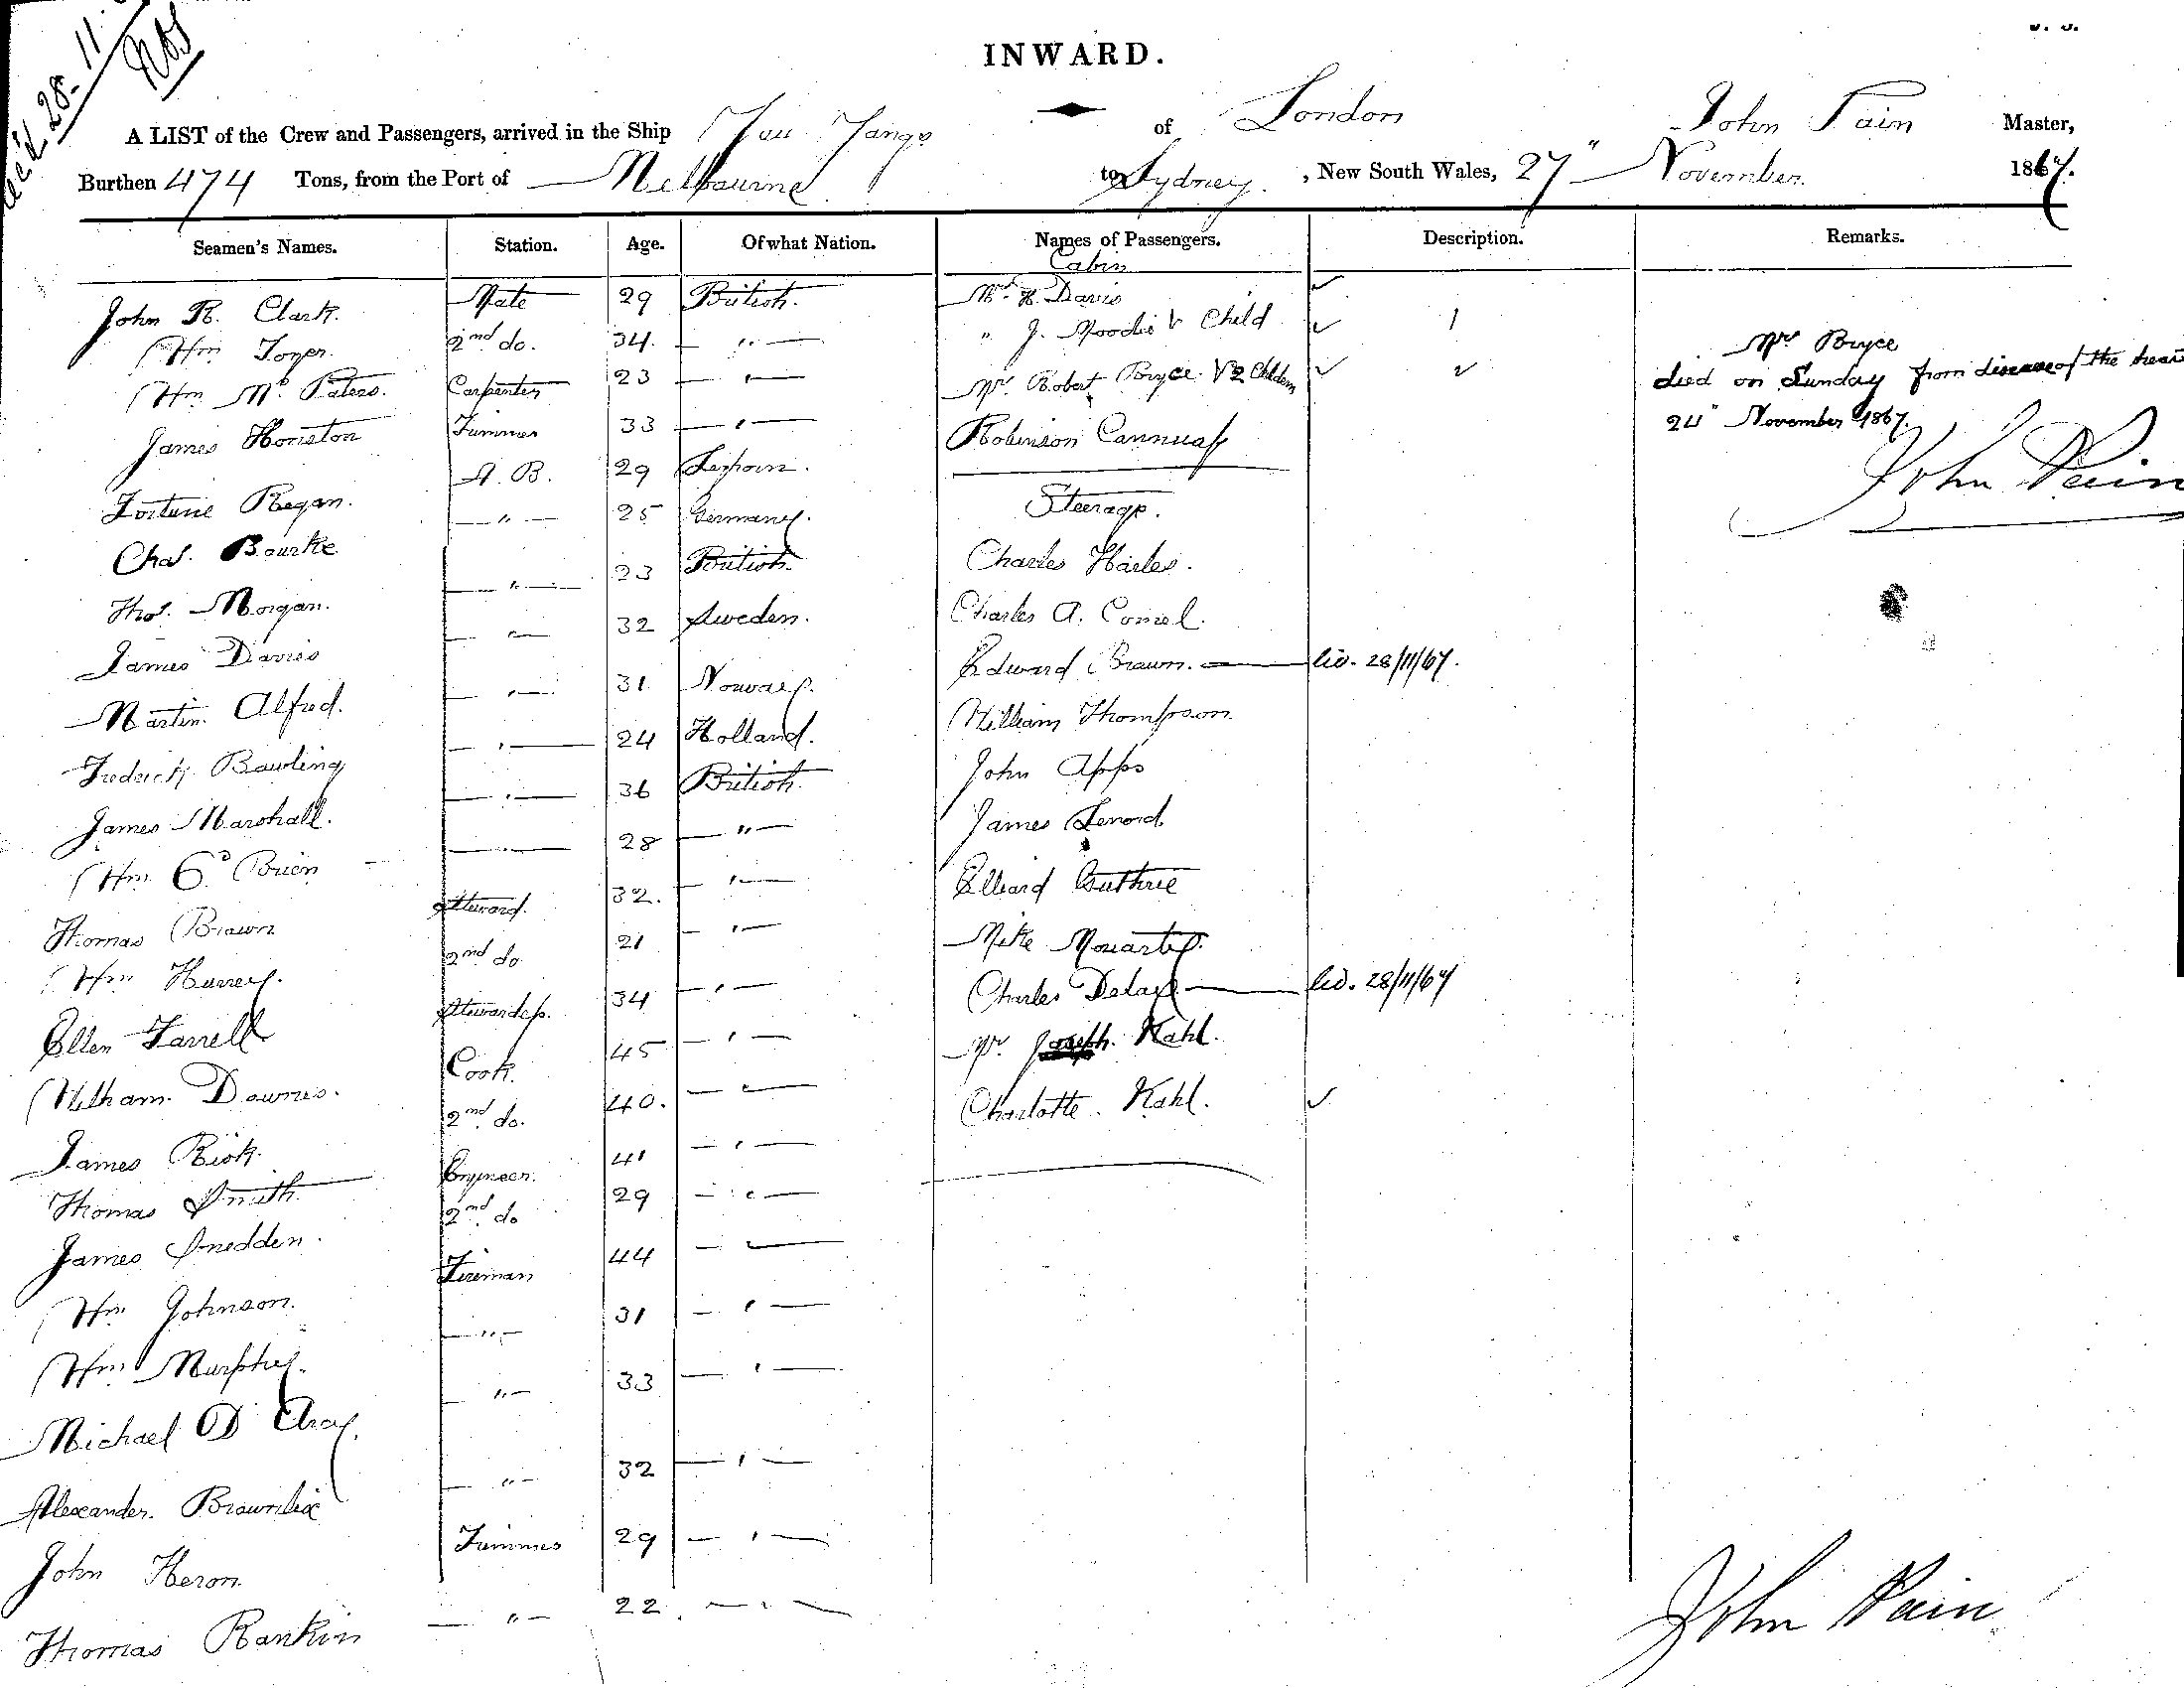 28. 11
INWARD.
A LIST of the Crew and Passengers, arrived in the Ship You Yangs of London John Pain Master,
Burthen 474 Tons, from the Port of Melbourne to Sydney, New South Wales, 27" November 1867.
Seamen's Names. Station. Age. Of what Nation. Names of Passengers. Description. Remarks.
Cabin
John R. Clark. Mate 29 British. Mr. H. Davis
Wm 2nd do. 34. " " J. Moodie & Child 1
Wm Mc. Carpenter 23 " Mr. Robert Bryce. & 2 Childern 2
James Houston Trimmer 33 " Robinson
Fortune Regan. A. B. 29
Chas. Bourke " 25 Germany.
Thos. Morgan. " 23 British.
James Davies " 32 Sweden.
Martin Alfred. " 31 Norway.
Fredrick Bowling " 24 Holland.
James Marshall. " 36 British.
Wm O'Brien 28 "
Thomas Brown Steward. 32. "
Wm 2nd do 21 "
Ellen Farrell Stewardess. 34 "
William Downes. Cook. 45 "
James Risk. 2nd do. 40. "
Thomas Smith Engineer. 41 "
James Snedden. 2nd do 29 "
Wm Johnson. Fireman 44
Wm Murphy. " 31 "
Michael " 33 "
Alexander Brownlie " 32 "
John Heron. Trimmer 29 "
Thomas Rankin " 22 "
Steerage.
Charles
Charles A.
Edward Brown. 28/11/67.
William Thompson.
John Apps
James Lenord
Edward Guthrie
Mike Moriarty.
Charles Delay 28/11/67
Mr. Joseph. Kahl.
Charlotte. Kahl.
Mr Bryce
died on Sunday from disease of the heart
24" November 1867.
John Pain
John Pain